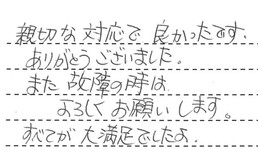 親切な対応で良かったです.
ありがとうございました.
また故障の時は
よろしくお願いします。
すべてが大満足でしたよ.